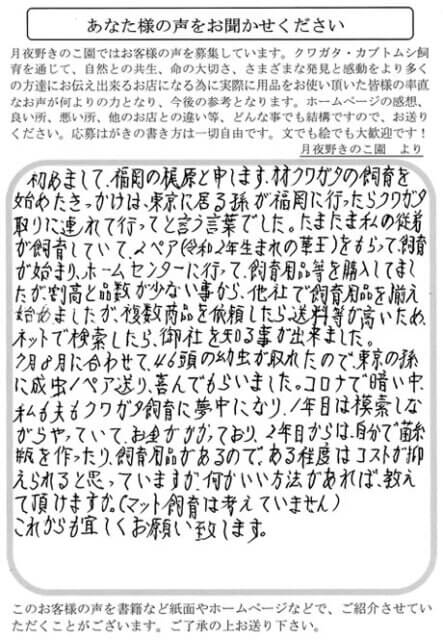 あなた様の声をお聞かせください
月夜野きのこ園ではお客様の声を募集しています。クワガタ・カブトムシ飼
育を通じて、自然との共生、命の大切さ、さまざまな発見と感動をより多く
の方達にお伝え出来るお店になる為に実際に用品をお使い頂いた皆様の率直
なお声が何よりの力となり、今後の参考となります。ホームページの感想、
良い所、悪い所、他のお店との違い等、どんな事でも結構ですので、お送り
ください。応募はがきの書き方は一切自由です。文でも絵でも大歓迎です！
月夜野きのこ園　より
初めまして、福岡の梶原と申します、オオクワガタの飼育を
始めたきっかけは、東京に居る孫が福岡に行ったらクワガタ
取りに連れて行ってと言う言葉でした。たまたま私の従弟
が飼育していて、2ペア(令和2年生まれの華王)をもらって、飼育
が始まり、ホームセンターに行って、飼育用品等を購入してまし
たが、割高と品数が少ない事から、他社で飼育用品を揃え
始めましたが、複数商品を依頼したら、送料等が高いため、
ネットで検索したら、御社を知る事が出来ました。
7月8月に合わせて、46頭の幼虫が取れたので、東京の孫
に成虫1ペア送り、喜んでもらいました。コロナで暗い中、
私も夫もクワガタ飼育に夢中になり、1年目は模索しな
がらやっていて、お金がかかっており、2年目からは、自分で菌糸
瓶を作ったり、飼育用品があるので、ある程度はコストが抑
えられると思っていますが、何かいい方法があれば、教え
て頂けますか。(マット飼育は考えていません)
これからも宜しくお願い致します。
このお客様の声を書籍など紙面やホームページなどで、ご紹介させてい
ただくことがございます。ご了承の上お送り下さい。